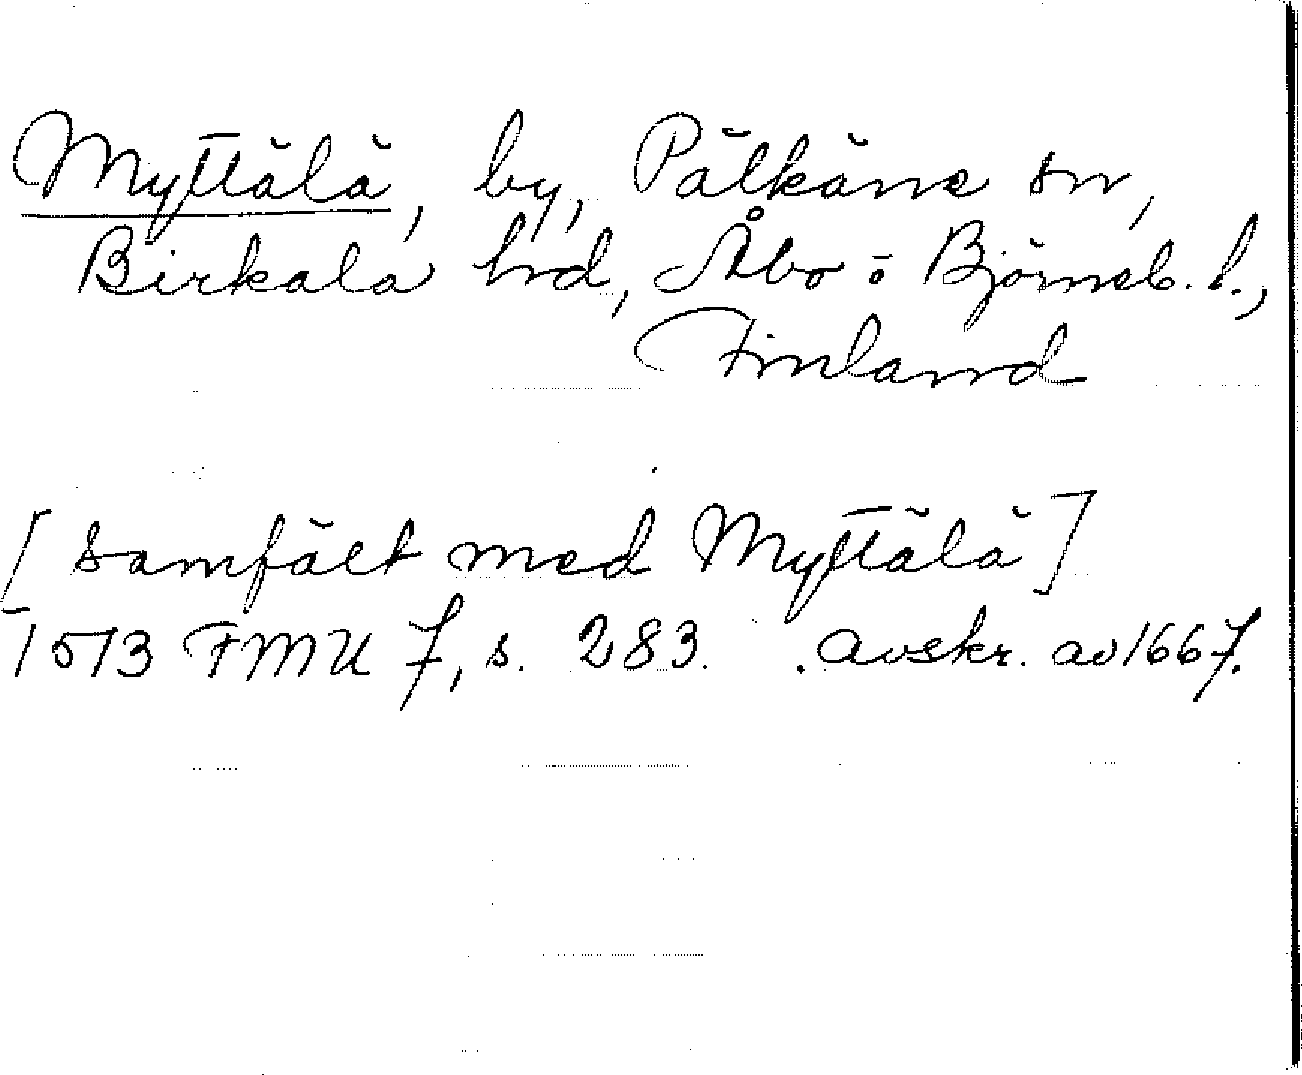 Myttälä, by, Pälkäne sn,
Birkala hd, Åbo o Björneb. l.,
Finland
[samfält med Myttälä]
1513 FMU 7, s. 283. avskr. av 1667.